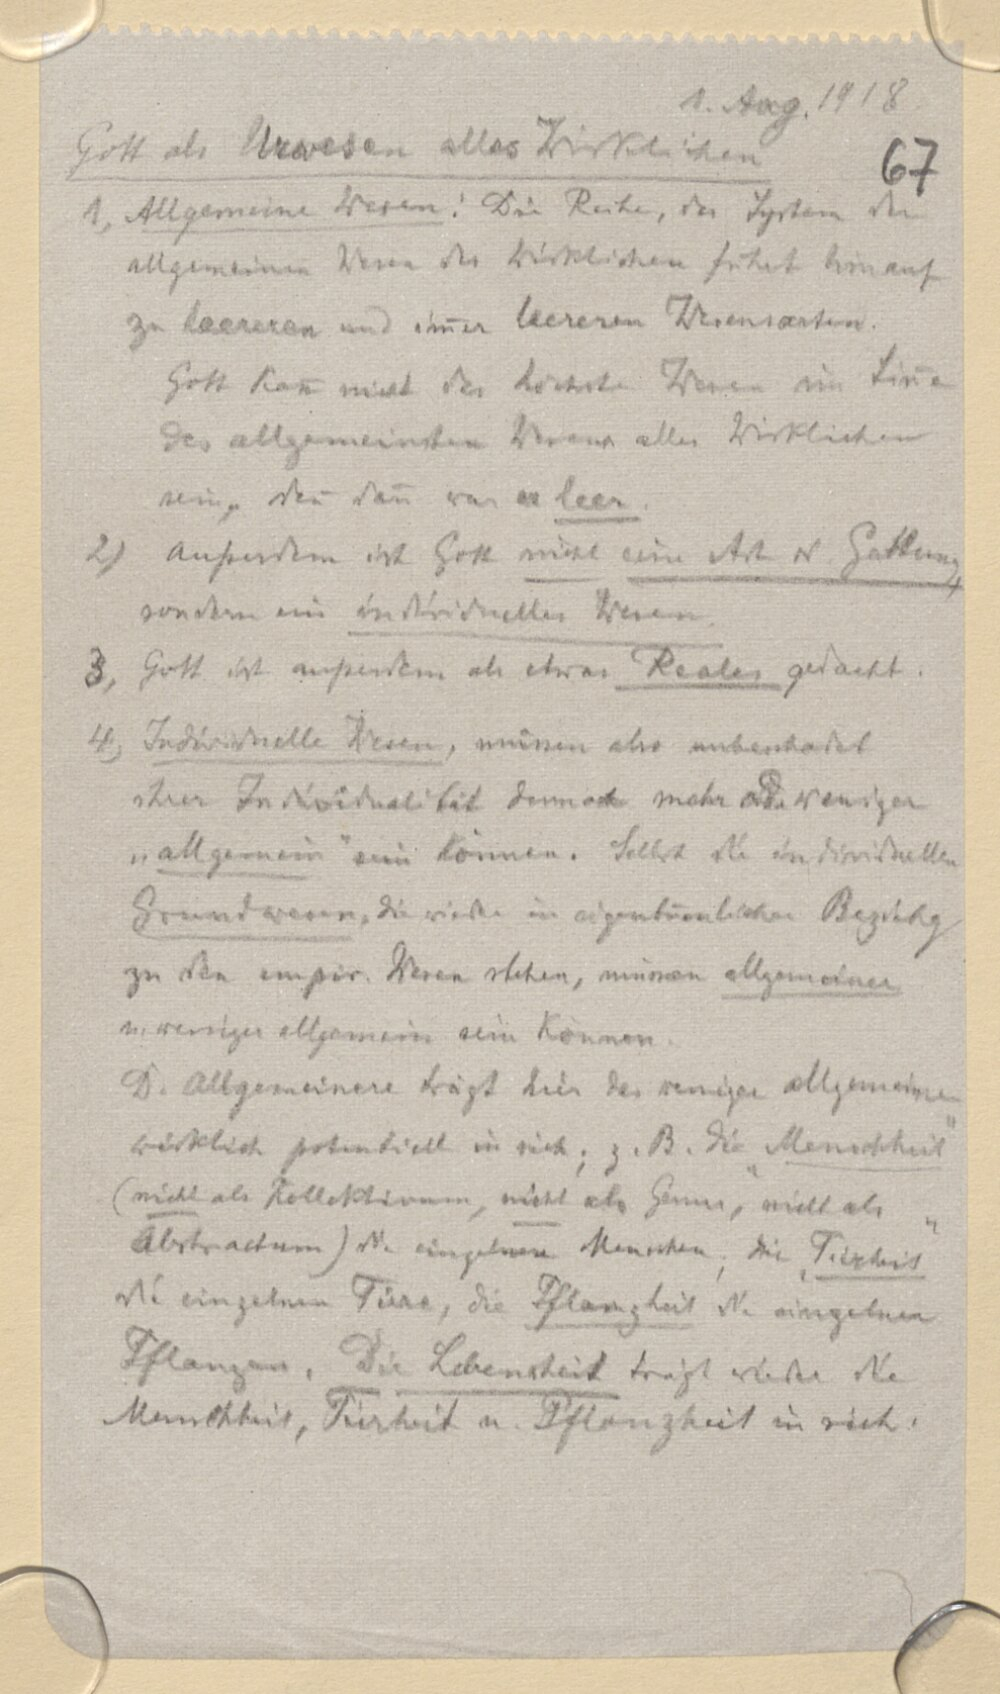 1. Aug. 1918
67
Gott als Urwesen alles Wirklichen
1, Allgemeine Wesen: Die Reihe, das System der
allgemeinen Wesen des Wirklichen führt hinauf
zu leereren und im̅er leereren Wesensarten.
Gott kan̅ nicht das höchste Wesen im Sin̅e
des allgemeinsten Wesens alles Wirklichen
sein, den̅ dan̅ war er leer.
2) Außerdem ist Gott nicht eine Art od. Gattung,
sondern ein individuelles Wesen.
3, Gott ist außerdem als etwas Reales gedacht.
4, Individuelle Wesen, müssen also unbeschadet
ihrer Individualität dennoch mehr oder weniger
„allgemein" sein können. Selbst die individuellen
Grundwesen, die wieder in eigentümlicher Beziehg
zu den empir. Wesen stehen, müssen allgemeiner
u. weniger allgemein sein können.
D. Allgemeinere trägt hier das weniger allgemeine
wirklich potentiell in sich; z. B. die „Menschheit"
(nicht als Kollektivum, nicht als Genus, nicht als
Abstractum) die einzelnen Menschen, die „Tierheit"
die einzelnen Tiere, die Pflanzheit die einzelnen
Pflanzen. Die Lebensheit trägt wieder die
Menschheit, Tierheit u. Pflanzheit in sich.